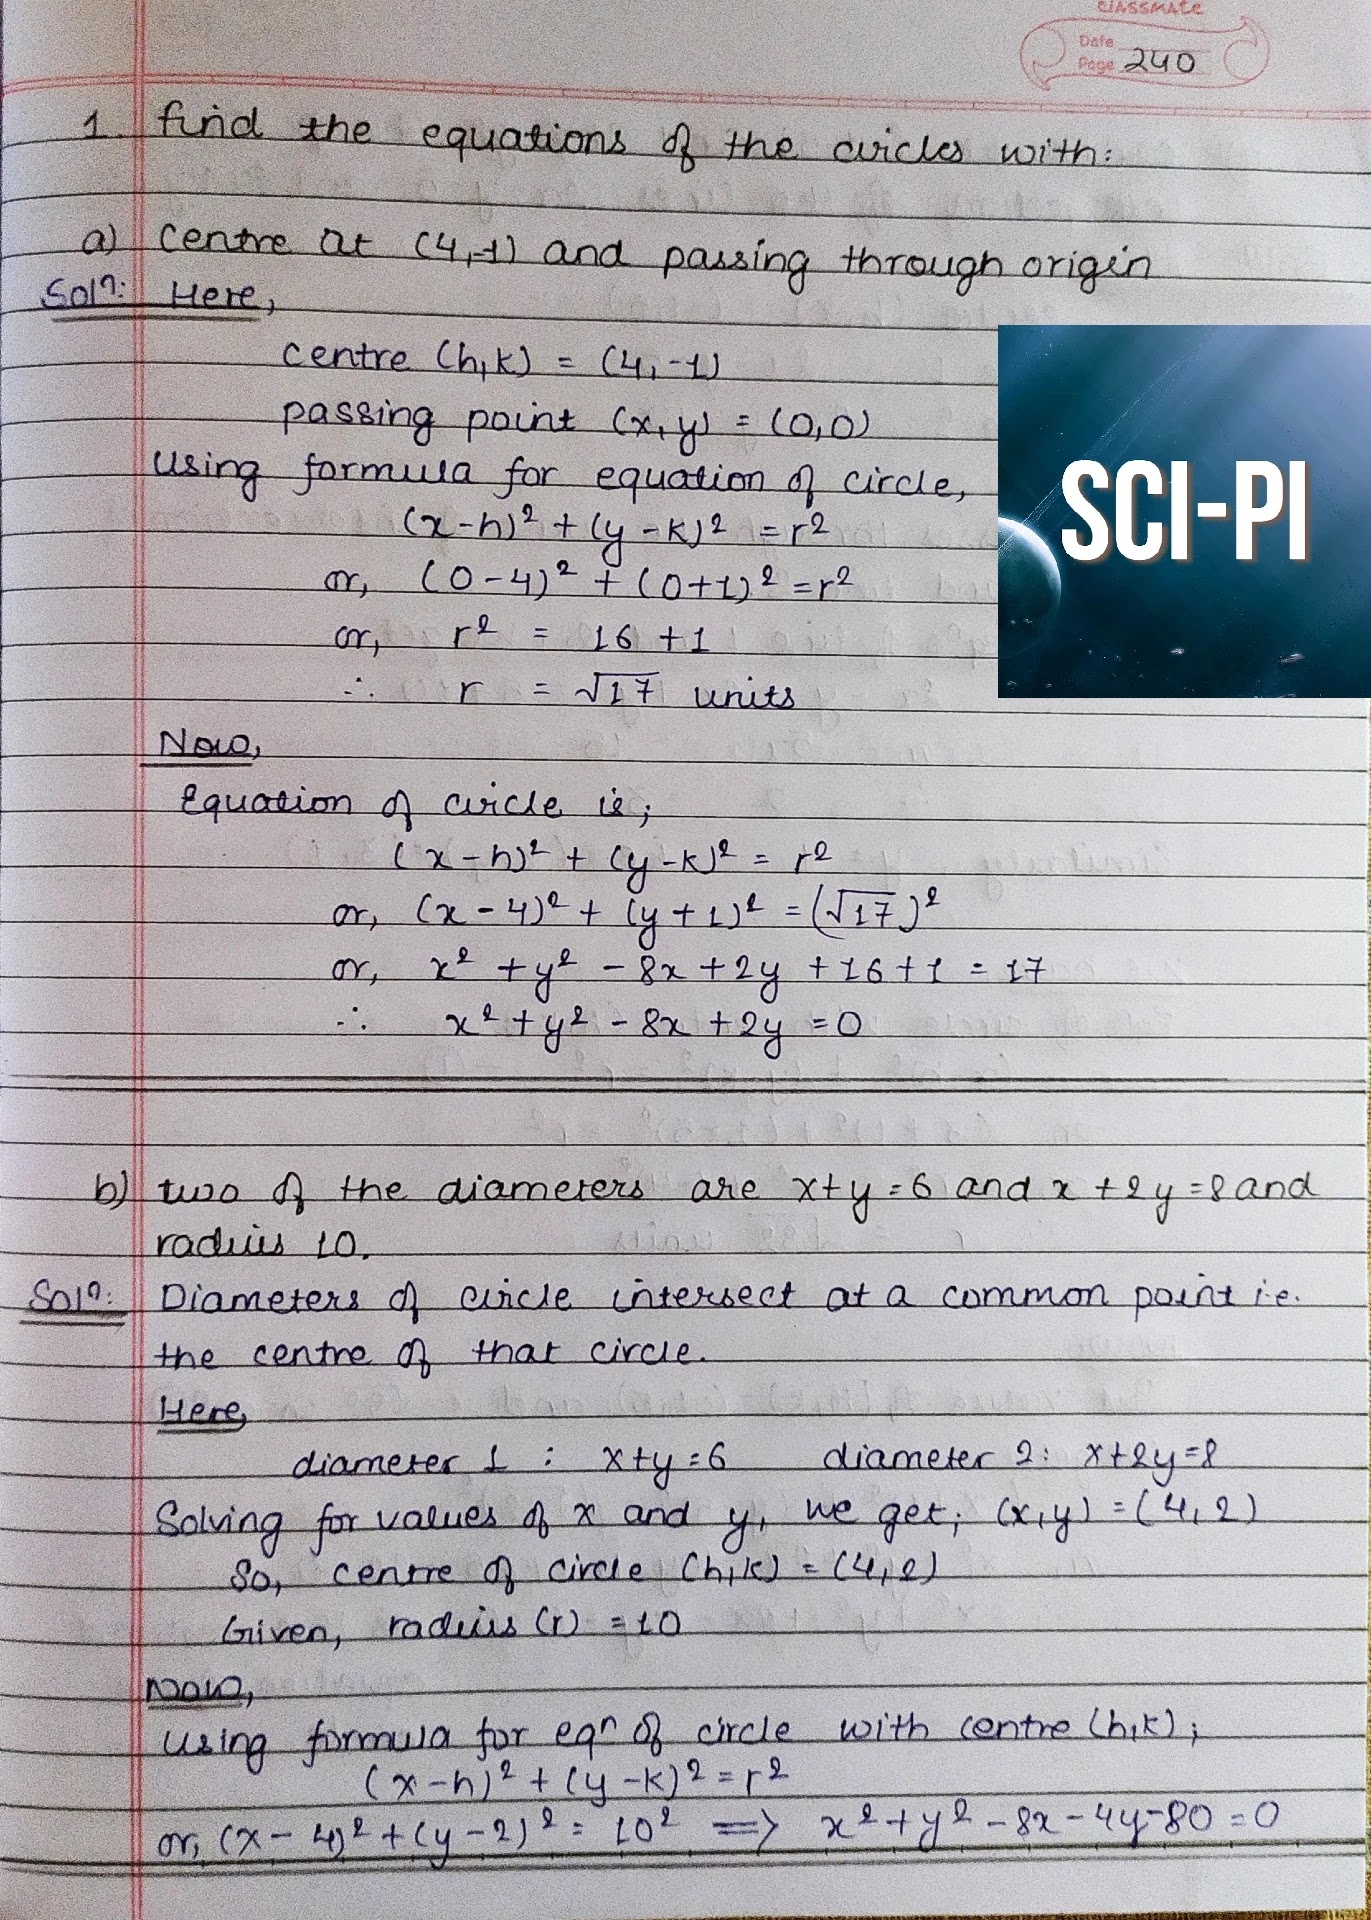 classmate
Date
Page 240
1. find the equations of the circles with:
a) centre at (4,-1) and passing through origin
Solⁿ: Here,
centre (h,k) = (4,-1)
passing point (x,y) = (0,0)
using formula for equation of circle,
(x-h)² + (y-k)² = r²
or, (0-4)² + (0+1)² = r²
or, r² = 16 +1
∴ r = √17 units
SCI-PI
Now,
Equation of circle is;
(x-h)² + (y-k)² = r²
or, (x-4)² + (y+1)² = (√17)²
or, x² + y² - 8x + 2y + 16 + 1 = 17
∴ x² + y² - 8x + 2y = 0
b) two of the diameters are x+y=6 and x+2y=8 and
radius 10.
Solⁿ: Diameters of circle intersect at a common point i.e.
the centre of that circle.
Here,
diameter 1 : x+y=6 diameter 2: x+2y=8
Solving for values of x and y, we get; (x,y) = (4,2)
So, centre of circle (h,k) = (4,2)
Given, radius (r) = 10
Now,
using formula for eqⁿ of circle with centre (h,k);
(x-h)² + (y-k)² = r²
or, (x-4)² + (y-2)² = 10² ⟹ x² + y² - 8x - 4y - 80 = 0